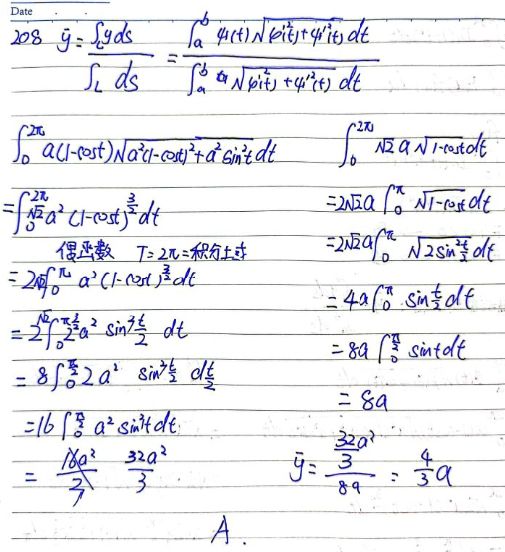 Date
208 ȳ = ∫_L y ds / ∫_L ds = ∫_a^b ψ(t) √(φ'²(t)+ψ'²(t)) dt / ∫_a^b √(φ'²(t)+ψ'²(t)) dt
∫_0^{2π} a(1-cost) √(a²(1-cost)²+a² sin²t) dt
= ∫_0^{2π} √2 a² (1-cost)^{3/2} dt
偶函数 T=2π=积分上导
= 2√2 ∫_0^π a² (1-cost)^{3/2} dt
= 2√2 ∫_0^π 2^{3/2} a² sin³ t/2 dt
= 8 ∫_0^{π/2} 2a² sin³ t/2 d t/2
= 16 ∫_0^{π/2} a² sin³t dt
= 32a²/3
∫_0^{2π} √2 a √(1-cost) dt
= 2√2 a ∫_0^π √(1-cost) dt
= 2√2 a ∫_0^π √(2sin² t/2) dt
= 4a ∫_0^π sin t/2 dt
= 8a ∫_0^{π/2} sint dt
= 8a
ȳ = (32a²/3) / 8a = 4/3 a
A.